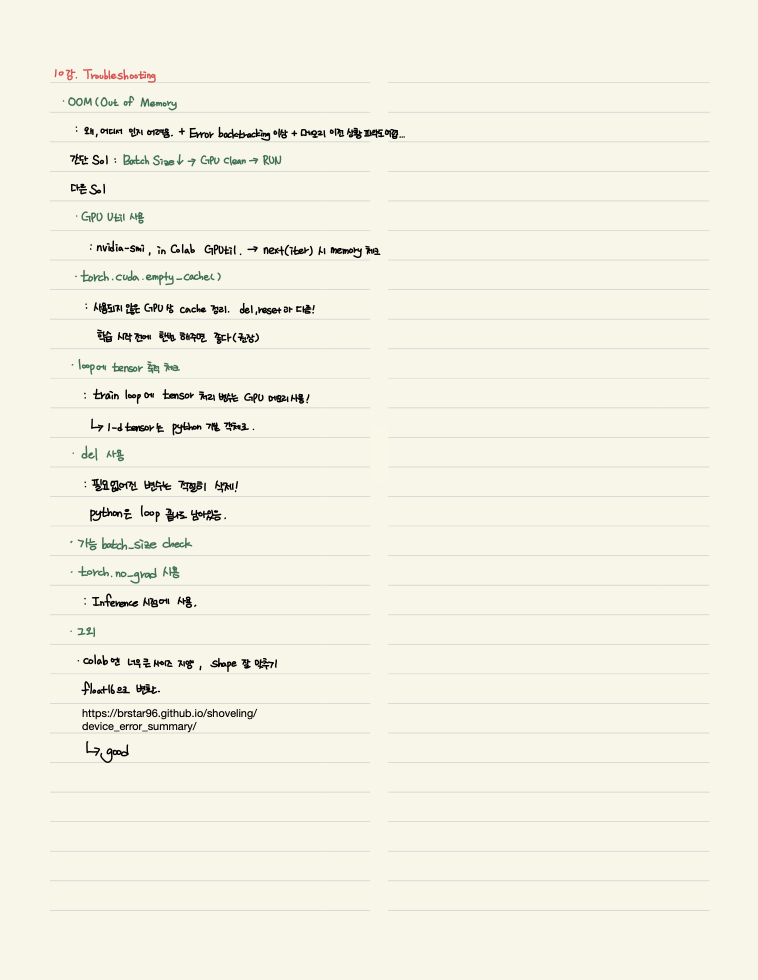 10강. Troubleshooting
· OOM (Out of Memory
: 왜, 어디서 인지 어려움. + Error backtracking 이상 + 메모리 이전 상황 파악도 어렵...
간단 Sol : Batch Size↓ → GPU clean → RUN
다른 Sol
· GPU Util 사용
: nvidia-smi, in Colab GPUtil. → next(iter) 시 memory 체크
· torch.cuda.empty_cache()
: 사용되지 않은 GPU상 cache 정리. del, reset과 다름!
학습 시작 전에 한번 해주면 좋다(권장)
· loop에 tensor 축적 체크
: train loop에 tensor 처리 변수는 GPU 메모리 사용!
↳ 1-d tensor는 python 기본 객체로.
· del 사용
: 필요없어진 변수는 적절히 삭제!
python은 loop 끝나도 남아있음.
· 가능 batch_size check
· torch.no_grad 사용
: Inference 시점에 사용.
· 그외
· colab엔 너무 큰 사이즈 지양, shape 잘 맞추기
float16으로 변환.
https://brstar96.github.io/shoveling/
device_error_summary/
↳ good